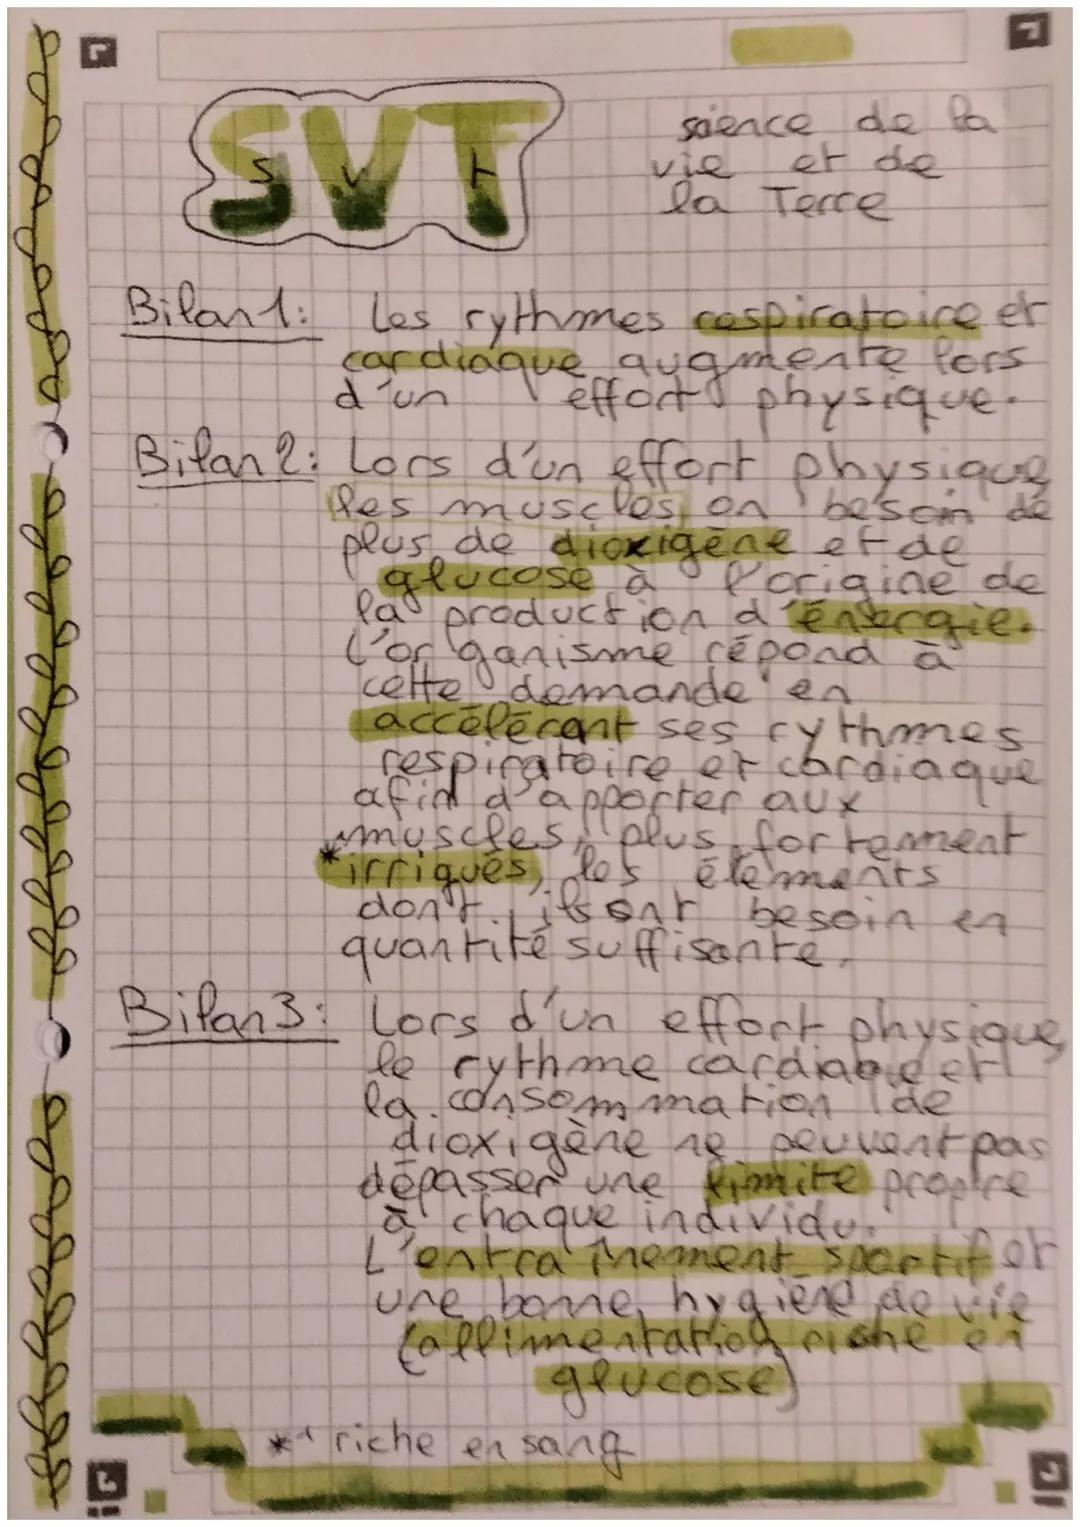 SVT
s v t
science de la
vie et de
la Terre
Bilan 1: Les rythmes respiratoire et
cardiaque augmente lors
d'un effort physique.
Bilan 2: Lors d'un effort physique,
les muscles, on besoin de
plus de dioxigène et de
glucose à l'origine de
la production d'énergie.
L'organisme répond à
cette demande en
accélérant ses rythmes
respiratoire et cardiaque
afin d'apporter aux
muscles, plus fortement
*irrigués, les éléments
dont ils ont besoin en
quantité suffisante.
Bilan 3: Lors d'un effort physique,
le rythme cardiaque et
la consommation de
dioxigène ne peuvent pas
dépasser une limite propre
à chaque individu.
L'entraînement sportif et
une bonne hygiène de vie
(allimentation riche en
glucose)
*1 riche en sang